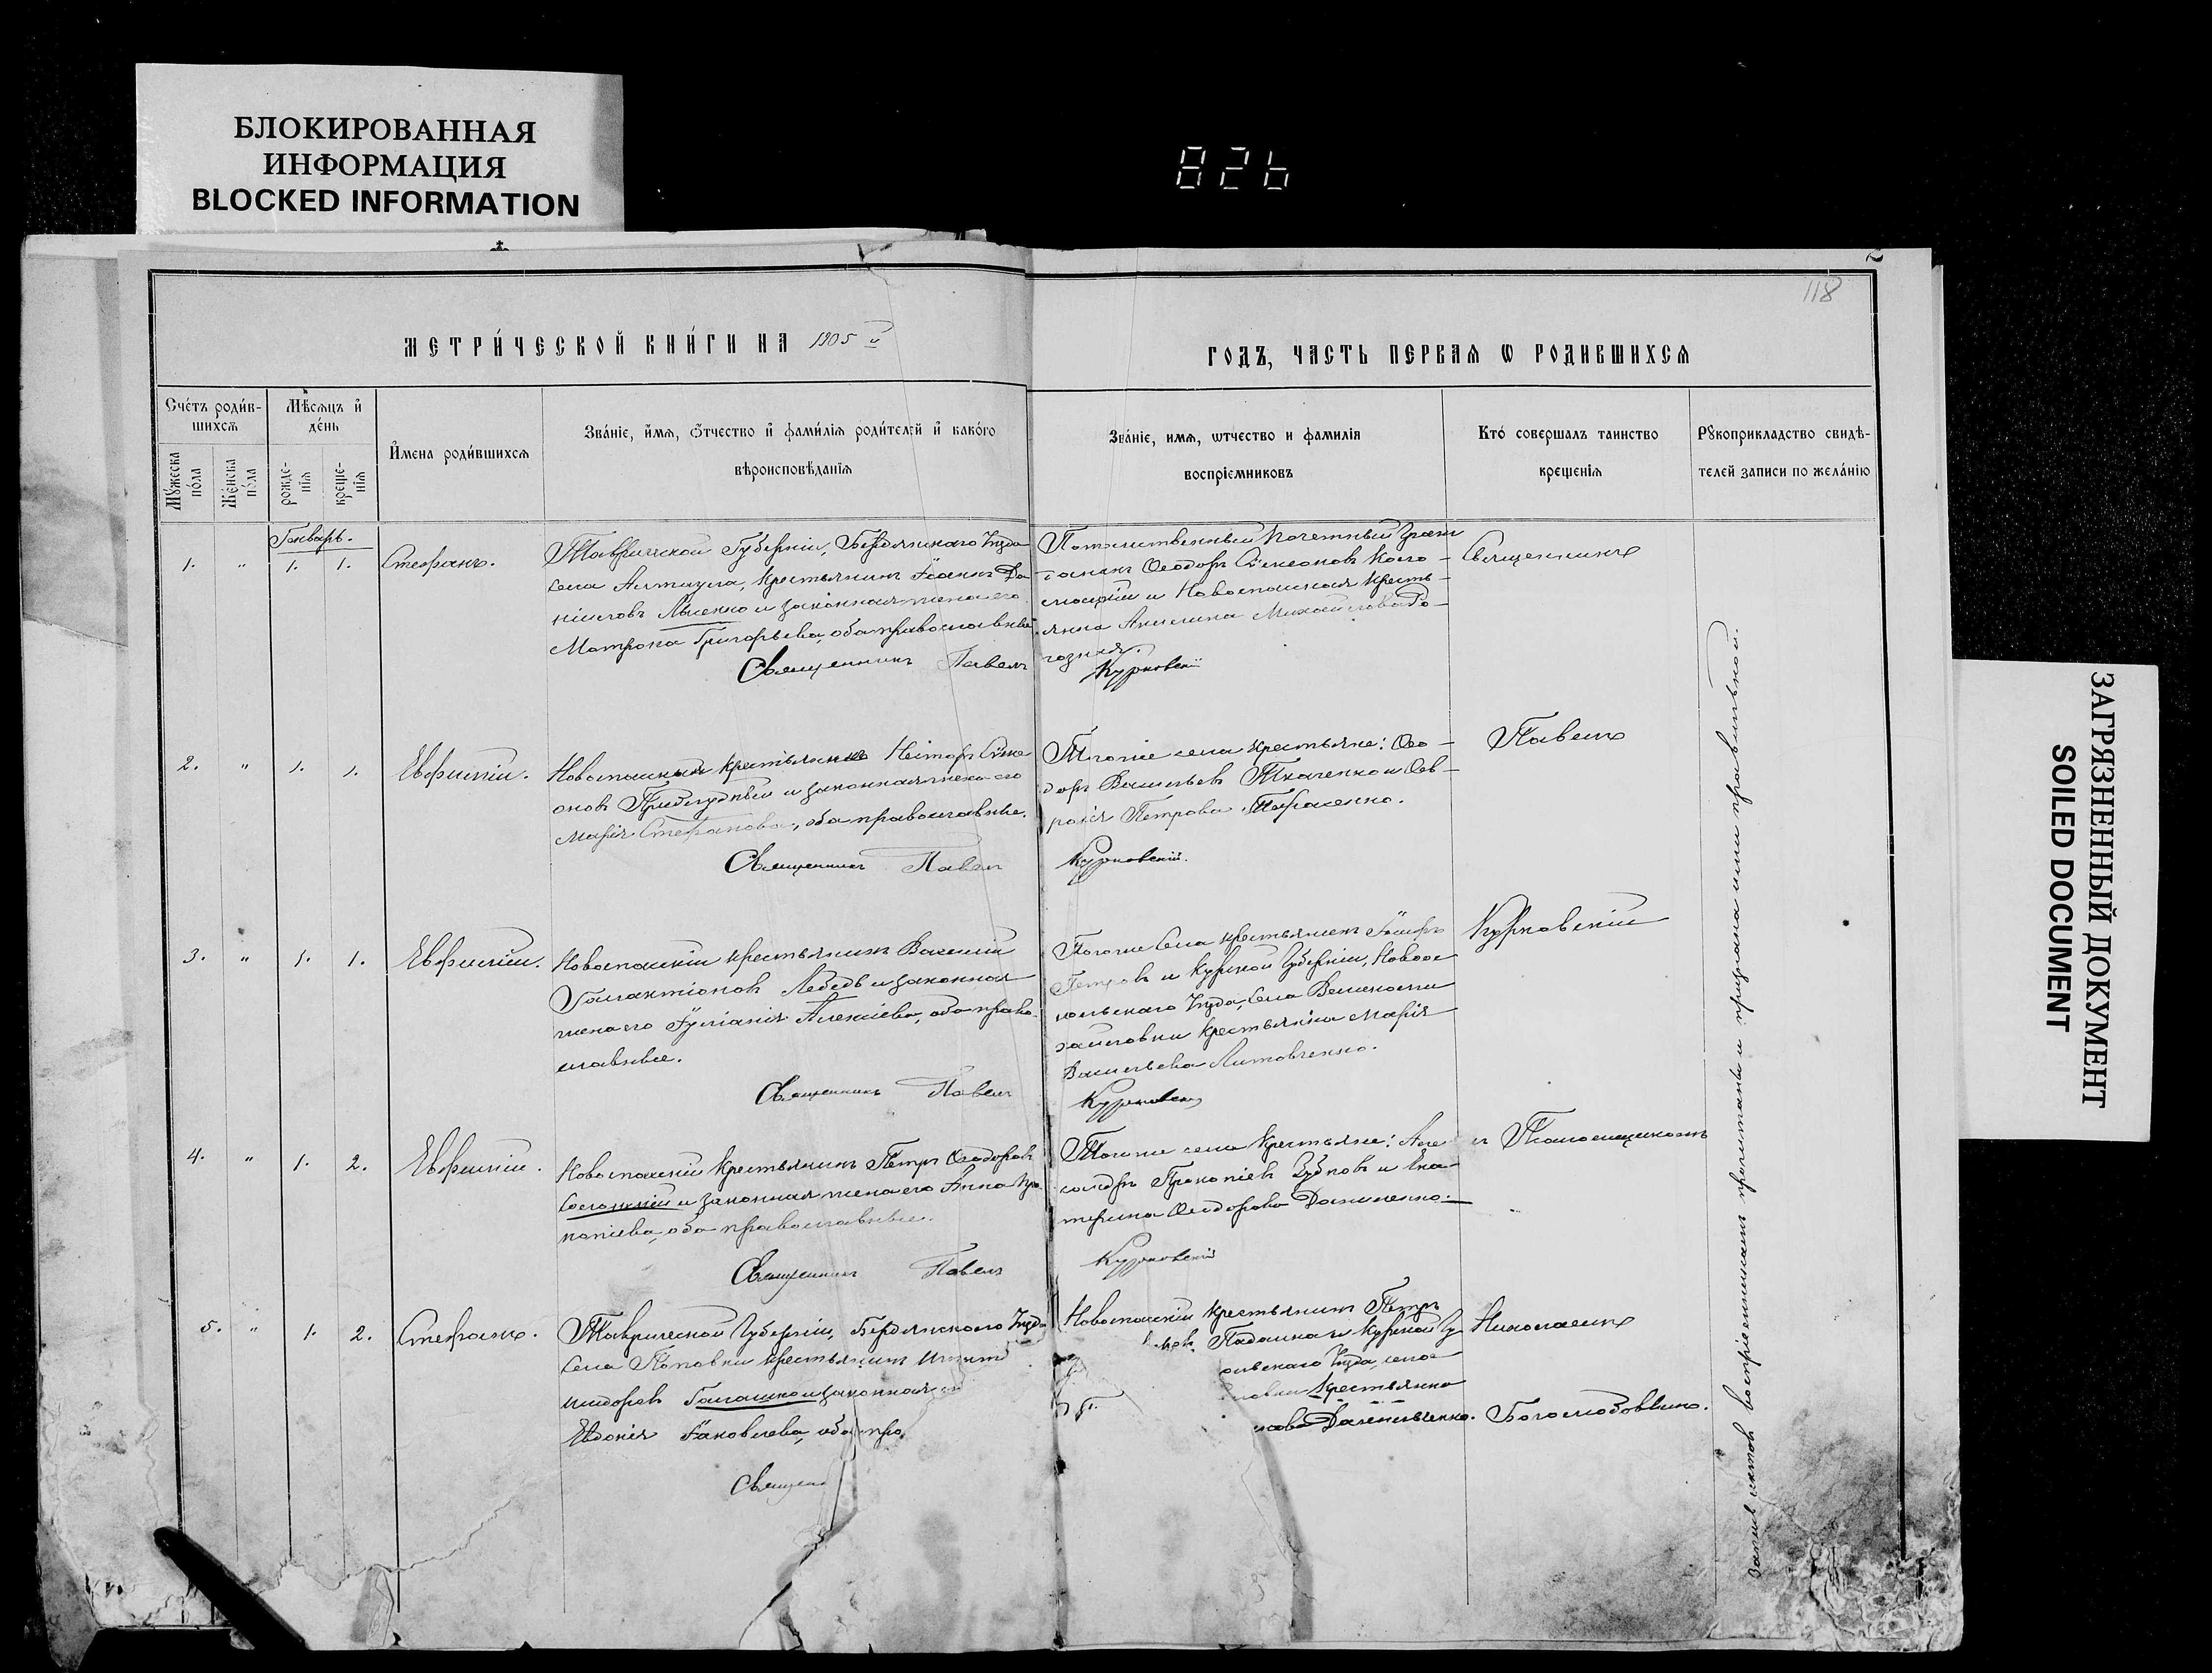 БЛОКИРОВАННАЯ
ИНФОРМАЦИЯ
BLOCKED INFORMATION
826
118
МЕТРИ́ЧЕСКОЙ КНИ́ГИ НА 1905 й
ГОДЪ, ЧАСТЬ ПЕРВАЯ Ѡ РОДИВШИХСЯ
Сче́тъ роди́в-
шихсѧ
Мꙋ́жеска по́ла
Же́нска по́ла
Мѣ́сѧцъ и҆ де́нь
рожде-
нїѧ
креще-
нїѧ
И҆мена роди́вшихсѧ
Зва́нїе, и҆́мѧ, ѻ҆́тчество и҆ фами́лїѧ роди́телей и҆ како́гѡ
вѣроисповѣ́данїѧ
Зва́нїе, имѧ, ѡтчество и фамилїѧ
воспрїемниковъ
Кто́ совершалъ таинство
крещенїѧ
Рꙋкоприкладство свидѣ-
телей записи по жела́нїю
Январь.
1. " 1. 1. Стефанъ.
Таврической Губерніи, Бердянскаго Уѣзда
села Алтаула, крестьянинъ Іоаннъ Да-
ніиловъ Лысенко и законная жена его
Матрона Григорьева, оба православные
Священникъ Павелъ Курковскій
Потомственный Почетный Граж-
данинъ Ѳеодоръ Сѵмеоновъ
и Новоспасская кресть-
янка Акилина Михайлова
Священникъ
2. " 1. 1. Евфимій.
Новоспасскій крестьянинъ Несторъ Сѵме-
оновъ и законная жена его
Марія Стефанова, оба православные.
Священникъ Павелъ Курковскій.
Тогоже села крестьяне: Ѳео-
доръ Васильевъ Ткаченко и Евф-
росія Петрова Тараненко.
Павелъ
3. " 1. 1. Евфимій.
Новоспасскій крестьянинъ Василій
Галактіоновъ Лебедь и законная
жена его Іуліанія Алексіева, оба право-
славные.
Священникъ Павелъ Курковскій
Тогоже села крестьянинъ
Петровъ и Курской Губерніи, Новоос-
кольскаго Уѣзда, села Великоми-
хайловки крестьянка Марія
Васильева Литовченко.
Курковскій
4. " 1. 2. Евфимій.
Новоспасскій крестьянинъ Петръ Ѳеодоровъ
и законная жена его Анна Про-
копіева, оба православные.
Священникъ Павелъ Курковскій
Тогоже села крестьяне: Але-
ксандръ Прокопіевъ Зубковъ и Ека-
терина Ѳеодорова Даниленко.
съ Псаломщикомъ
5. " 1. 2. Стефанъ.
Таврической Губерніи, Бердянскаго Уѣзда
села Поповки крестьянинъ
Исидоровъ Галашко и законная
Евдокія Іаковлева, оба пра
Священ
Новоспасскій крестьянинъ Петръ
Падалка и Курской Гу
ольскаго Уѣзда, села
ловки крестьянка
Николаемъ
Боголюбовымъ.
Запись актовъ воспріемникамъ прочитаны и признана ими правильной.
ЗАГРЯЗНЕННЫЙ ДОКУМЕНТ
SOILED DOCUMENT